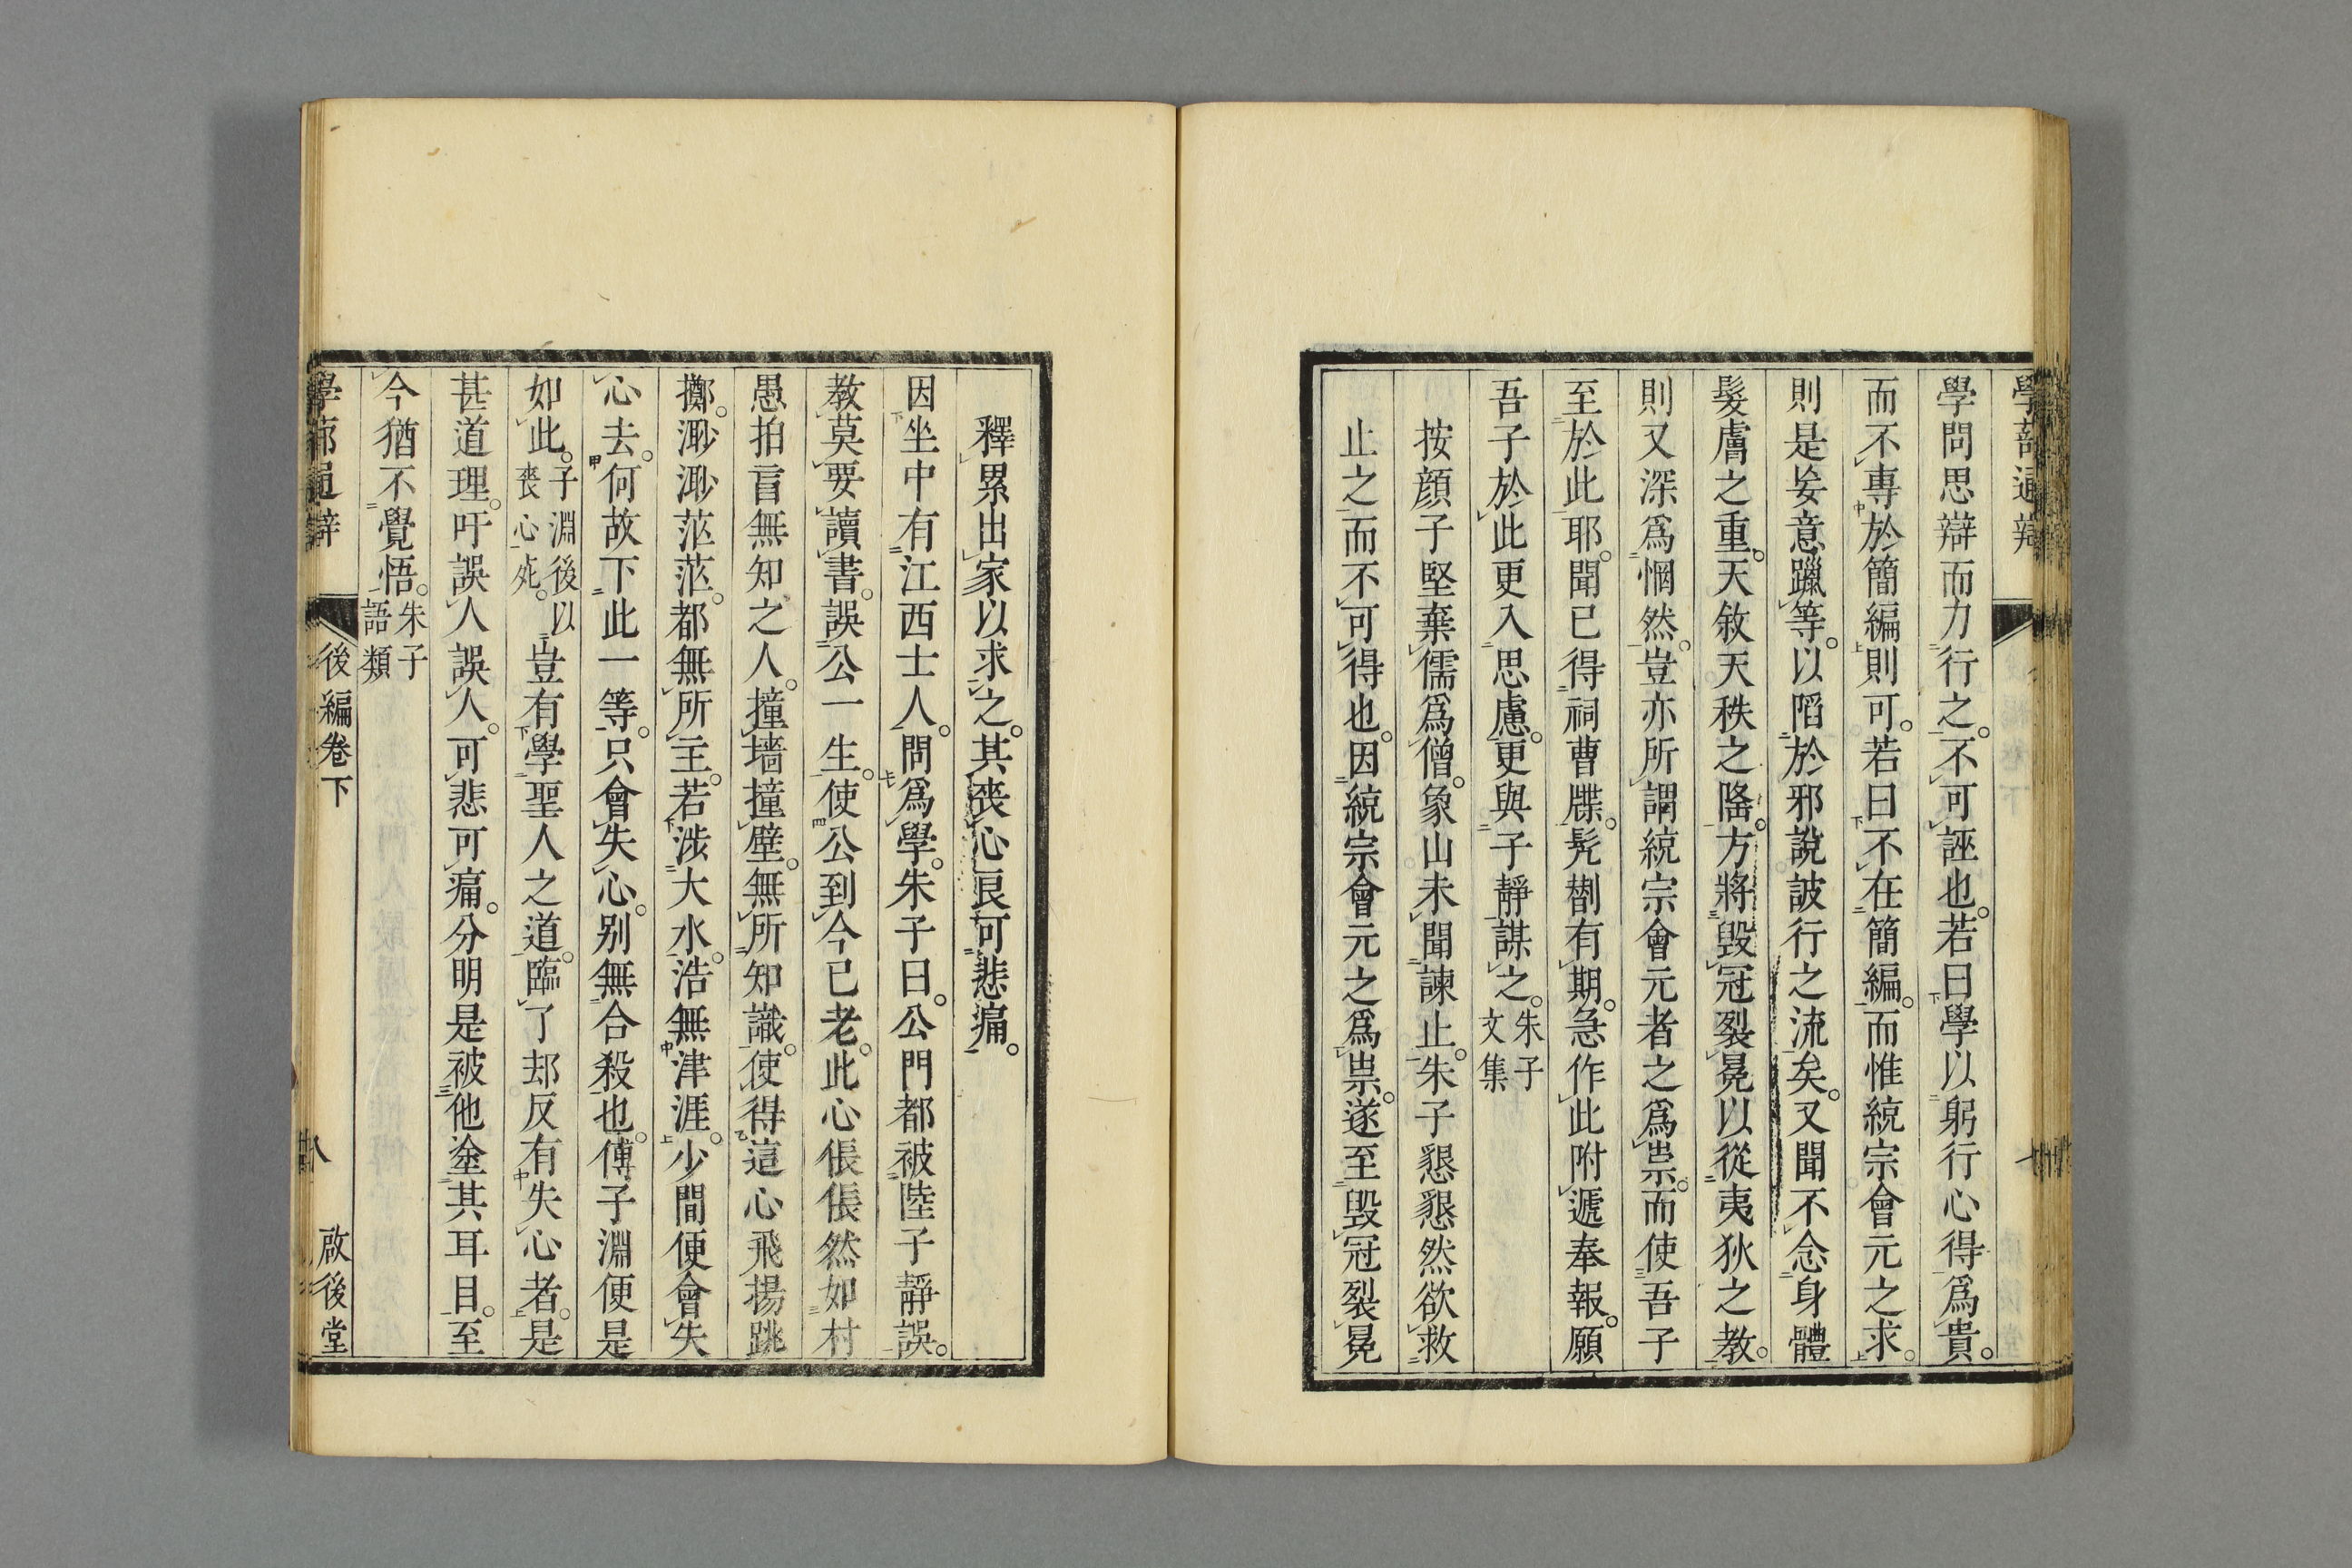 學蔀通辯
學問思辯而力行之。不可誣也。若曰學以躬行心得爲貴。
而不專於簡編則可。若曰不在簡編。而惟統宗會元之求。
則是妄意躐等。以陷於邪說詖行之流矣。又聞不念身體
髮膚之重。天敘天秩之隆。方將毀冠裂冕以從夷狄之教。
則又深爲惘然。豈亦所謂統宗會元者之爲祟。而使吾子
至於此耶。聞已得祠曹牒。髠剃有期。急作此附遞奉報。願
吾子於此更入思慮。更與子靜謀之。朱子文集
按顔子堅棄儒爲僧。象山未聞諫止。朱子懇懇然欲救
止之而不可得也。因統宗會元之爲祟。遂至毀冠裂冕
釋累出家以求之。其喪心良可悲痛。
因坐中有江西士人。問爲學。朱子曰。公門都被陸子靜誤。
教莫要讀書。誤公一生。使公到今已老。此心倀倀然如村
愚拍盲無知之人。撞墻撞壁。無所知識。使得這心飛揚跳
擲。渺渺茫茫。都無所主。若涉大水。浩無津涯。少間便會失
心去。何故下此一等。只會失心。别無合殺也。傅子淵便是
如此。子淵後以喪心死。豈有學聖人之道。臨了却反有失心者。是
甚道理。吁誤人誤人。可悲可痛。分明是被他塗其耳目。至
今猶不覺悟。朱子語類
學蔀通辯 後編卷下 啟後堂